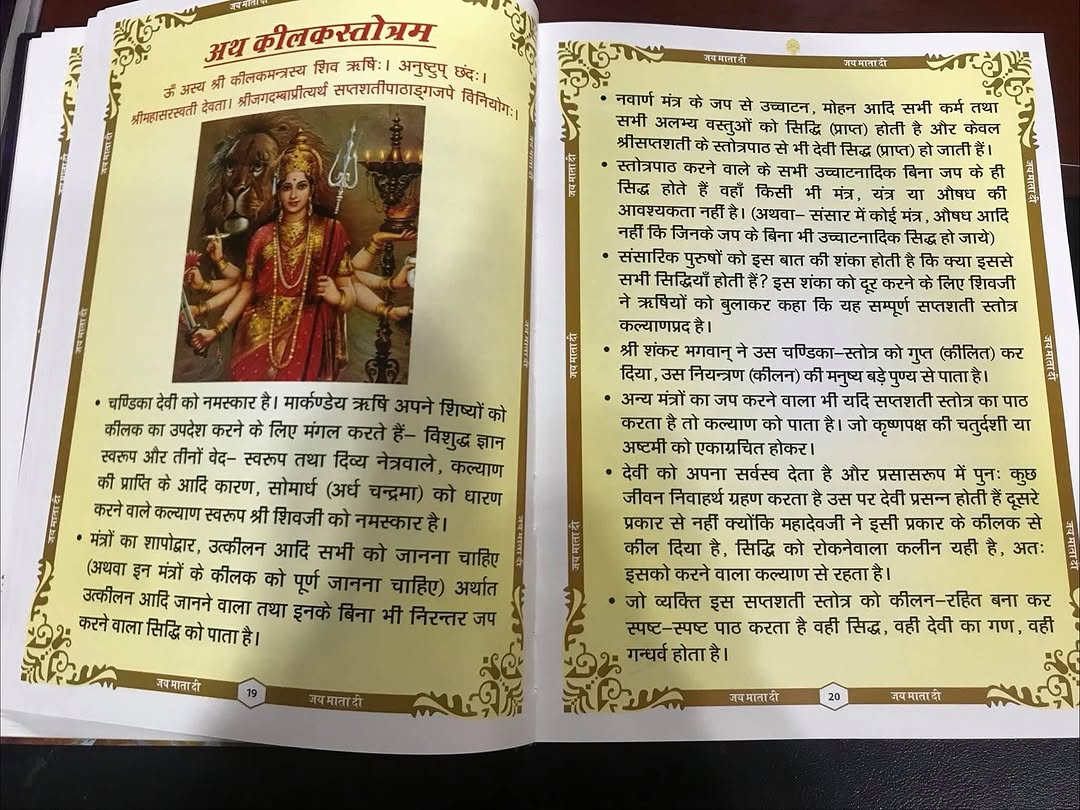 जय माता दी
अथ कीलकस्तोत्रम
ॐ अस्य श्री कीलकमन्त्रस्य शिव ऋषिः। अनुष्टुप् छंदः।
श्रीमहासरस्वती देवता। श्रीजगदम्बाप्रीत्यर्थ सप्तशतीपाठाङ्गजपे विनियोगः।
• चण्डिका देवी को नमस्कार है। मार्कण्डेय ऋषि अपने शिष्यों को
कीलक का उपदेश करने के लिए मंगल करते हैं– विशुद्ध ज्ञान
स्वरूप और तीनों वेद– स्वरूप तथा दिव्य नेत्रवाले, कल्याण
की प्राप्ति के आदि कारण, सोमार्ध (अर्ध चन्द्रमा) को धारण
करने वाले कल्याण स्वरूप श्री शिवजी को नमस्कार है।
• मंत्रों का शापोद्वार, उत्कीलन आदि सभी को जानना चाहिए
(अथवा इन मंत्रों के कीलक को पूर्ण जानना चाहिए) अर्थात
उत्कीलन आदि जानने वाला तथा इनके बिना भी निरन्तर जप
करने वाला सिद्धि को पाता है।
जय माता दी
19
जय माता दी
जय माता दी
जय माता दी
जय माता दी
जय माता दी
जय माता दी
जय माता दी
जय माता दी
जय माता दी
जय माता दी
• नवार्ण मंत्र के जप से उच्चाटन, मोहन आदि सभी कर्म तथा
सभी अलभ्य वस्तुओं को सिद्धि (प्राप्त) होती है और केवल
श्रीसप्तशती के स्तोत्रपाठ से भी देवी सिद्ध (प्राप्त) हो जाती हैं।
• स्तोत्रपाठ करने वाले के सभी उच्चाटनादिक बिना जप के ही
सिद्ध होते हैं वहाँ किसी भी मंत्र, यंत्र या औषध की
आवश्यकता नहीं है। (अथवा– संसार में कोई मंत्र, औषध आदि
नहीं कि जिनके जप के बिना भी उच्चाटनादिक सिद्ध हो जाये)
• संसारिक पुरुषों को इस बात की शंका होती है कि क्या इससे
सभी सिद्धियाँ होती हैं? इस शंका को दूर करने के लिए शिवजी
ने ऋषियों को बुलाकर कहा कि यह सम्पूर्ण सप्तशती स्तोत्र
कल्याणप्रद है।
• श्री शंकर भगवान् ने उस चण्डिका–स्तोत्र को गुप्त (कीलित) कर
दिया, उस नियन्त्रण (कीलन) की मनुष्य बड़े पुण्य से पाता है।
• अन्य मंत्रों का जप करने वाला भी यदि सप्तशती स्तोत्र का पाठ
करता है तो कल्याण को पाता है। जो कृष्णपक्ष की चतुर्दशी या
अष्टमी को एकाग्रचित होकर।
• देवी को अपना सर्वस्व देता है और प्रसासरूप में पुनः कुछ
जीवन निवाहर्थ ग्रहण करता है उस पर देवी प्रसन्न होती हैं दूसरे
प्रकार से नहीं क्योंकि महादेवजी ने इसी प्रकार के कीलक से
कील दिया है, सिद्धि को रोकनेवाला कलीन यही है, अतः
इसको करने वाला कल्याण से रहता है।
• जो व्यक्ति इस सप्तशती स्तोत्र को कीलन–रहित बना कर
स्पष्ट–स्पष्ट पाठ करता है वही सिद्ध, वही देवी का गण, वही
गन्धर्व होता है।
जय माता दी
जय माता दी
जय माता दी
जय माता दी
जय माता दी
जय माता दी
जय माता दी
20
जय माता दी